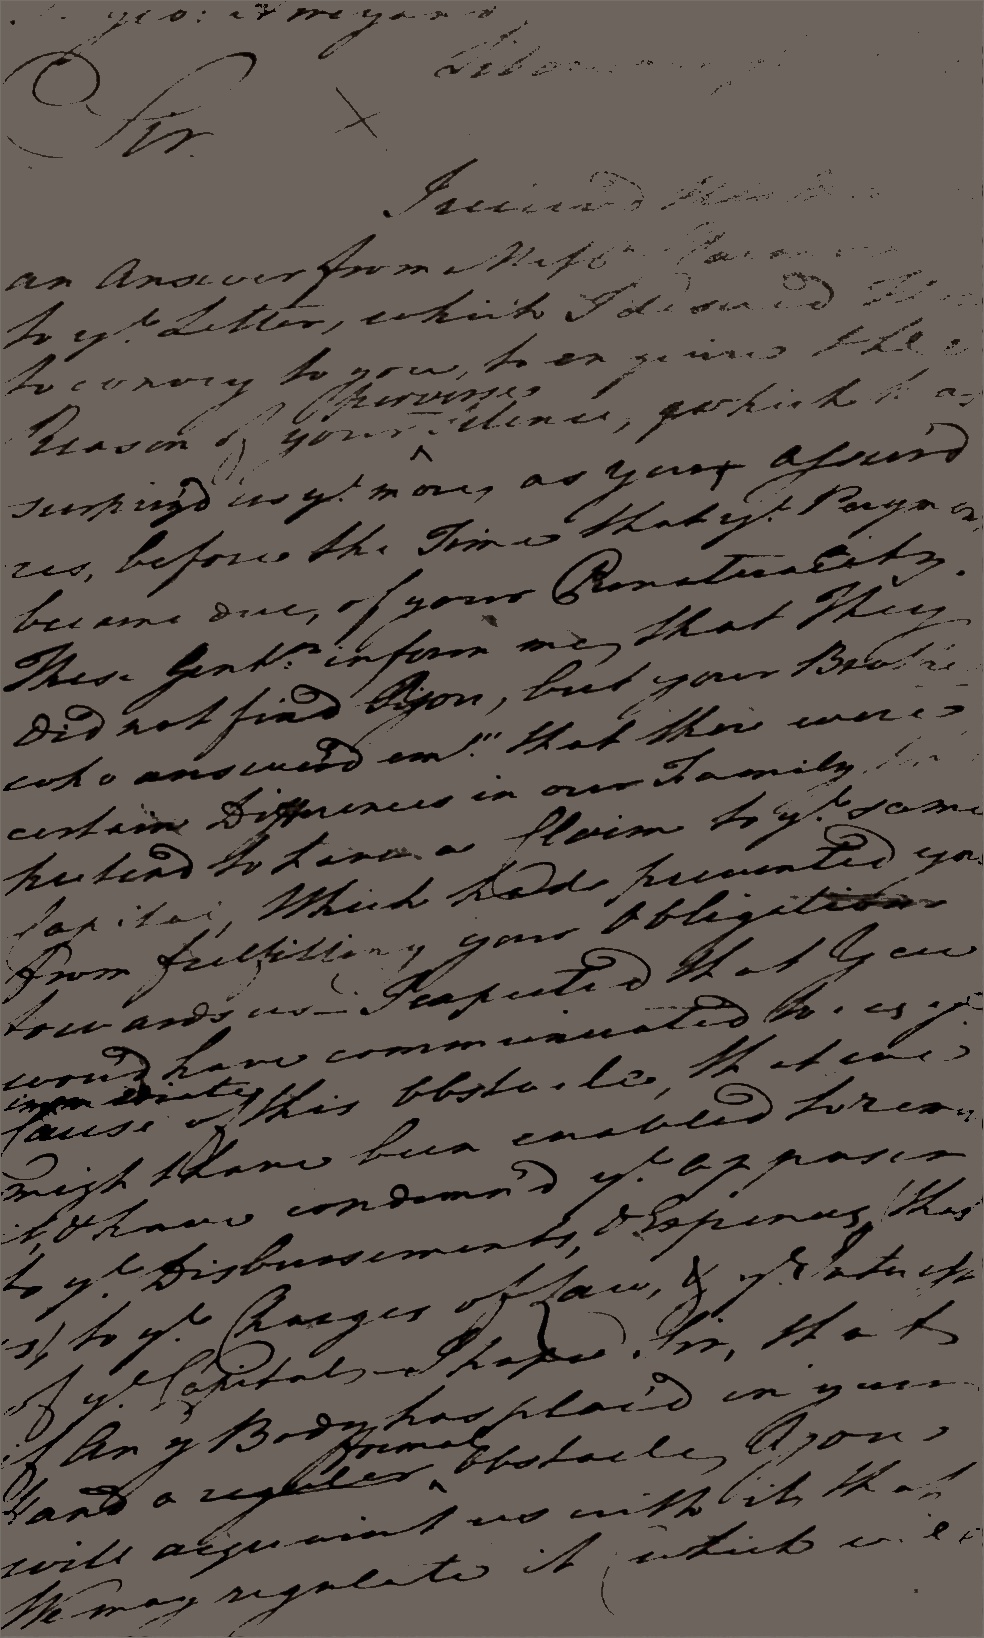 Sir.
I receiv'd
an Answer from Mess.rs
to y.e Letter, which I desired
to convey to you, to enquire the
Reason of your perverse Silence, which has
surpriz'd us y.e more, as you assur'd
us, before the Time that y.e Paym
became due, of your Punctuality.
These Gent.n inform me, that They
Did not find You, but your Brothe
who answer'd em "that there were
certain Differences in our Family
pretend to have a Claim to y.e same
Capital, Which had prevented you
from fulfilling your Obligations
towards us — I expected that You
would have communicated to us y.e
immediate
Cause of this Obstacle, that we
might have been enabled to remo
it, & have condemn'd y.e opposer
to y.e Disbursements, & Expences, that
is, to y.e Charges of Law, & y.e Interest
of y.e Capital — I hope Sir, that
if Any Body has plac'd in your
Hand a regular formal Obstacle, You
will acquaint us with it, that
We may regulate it (which will